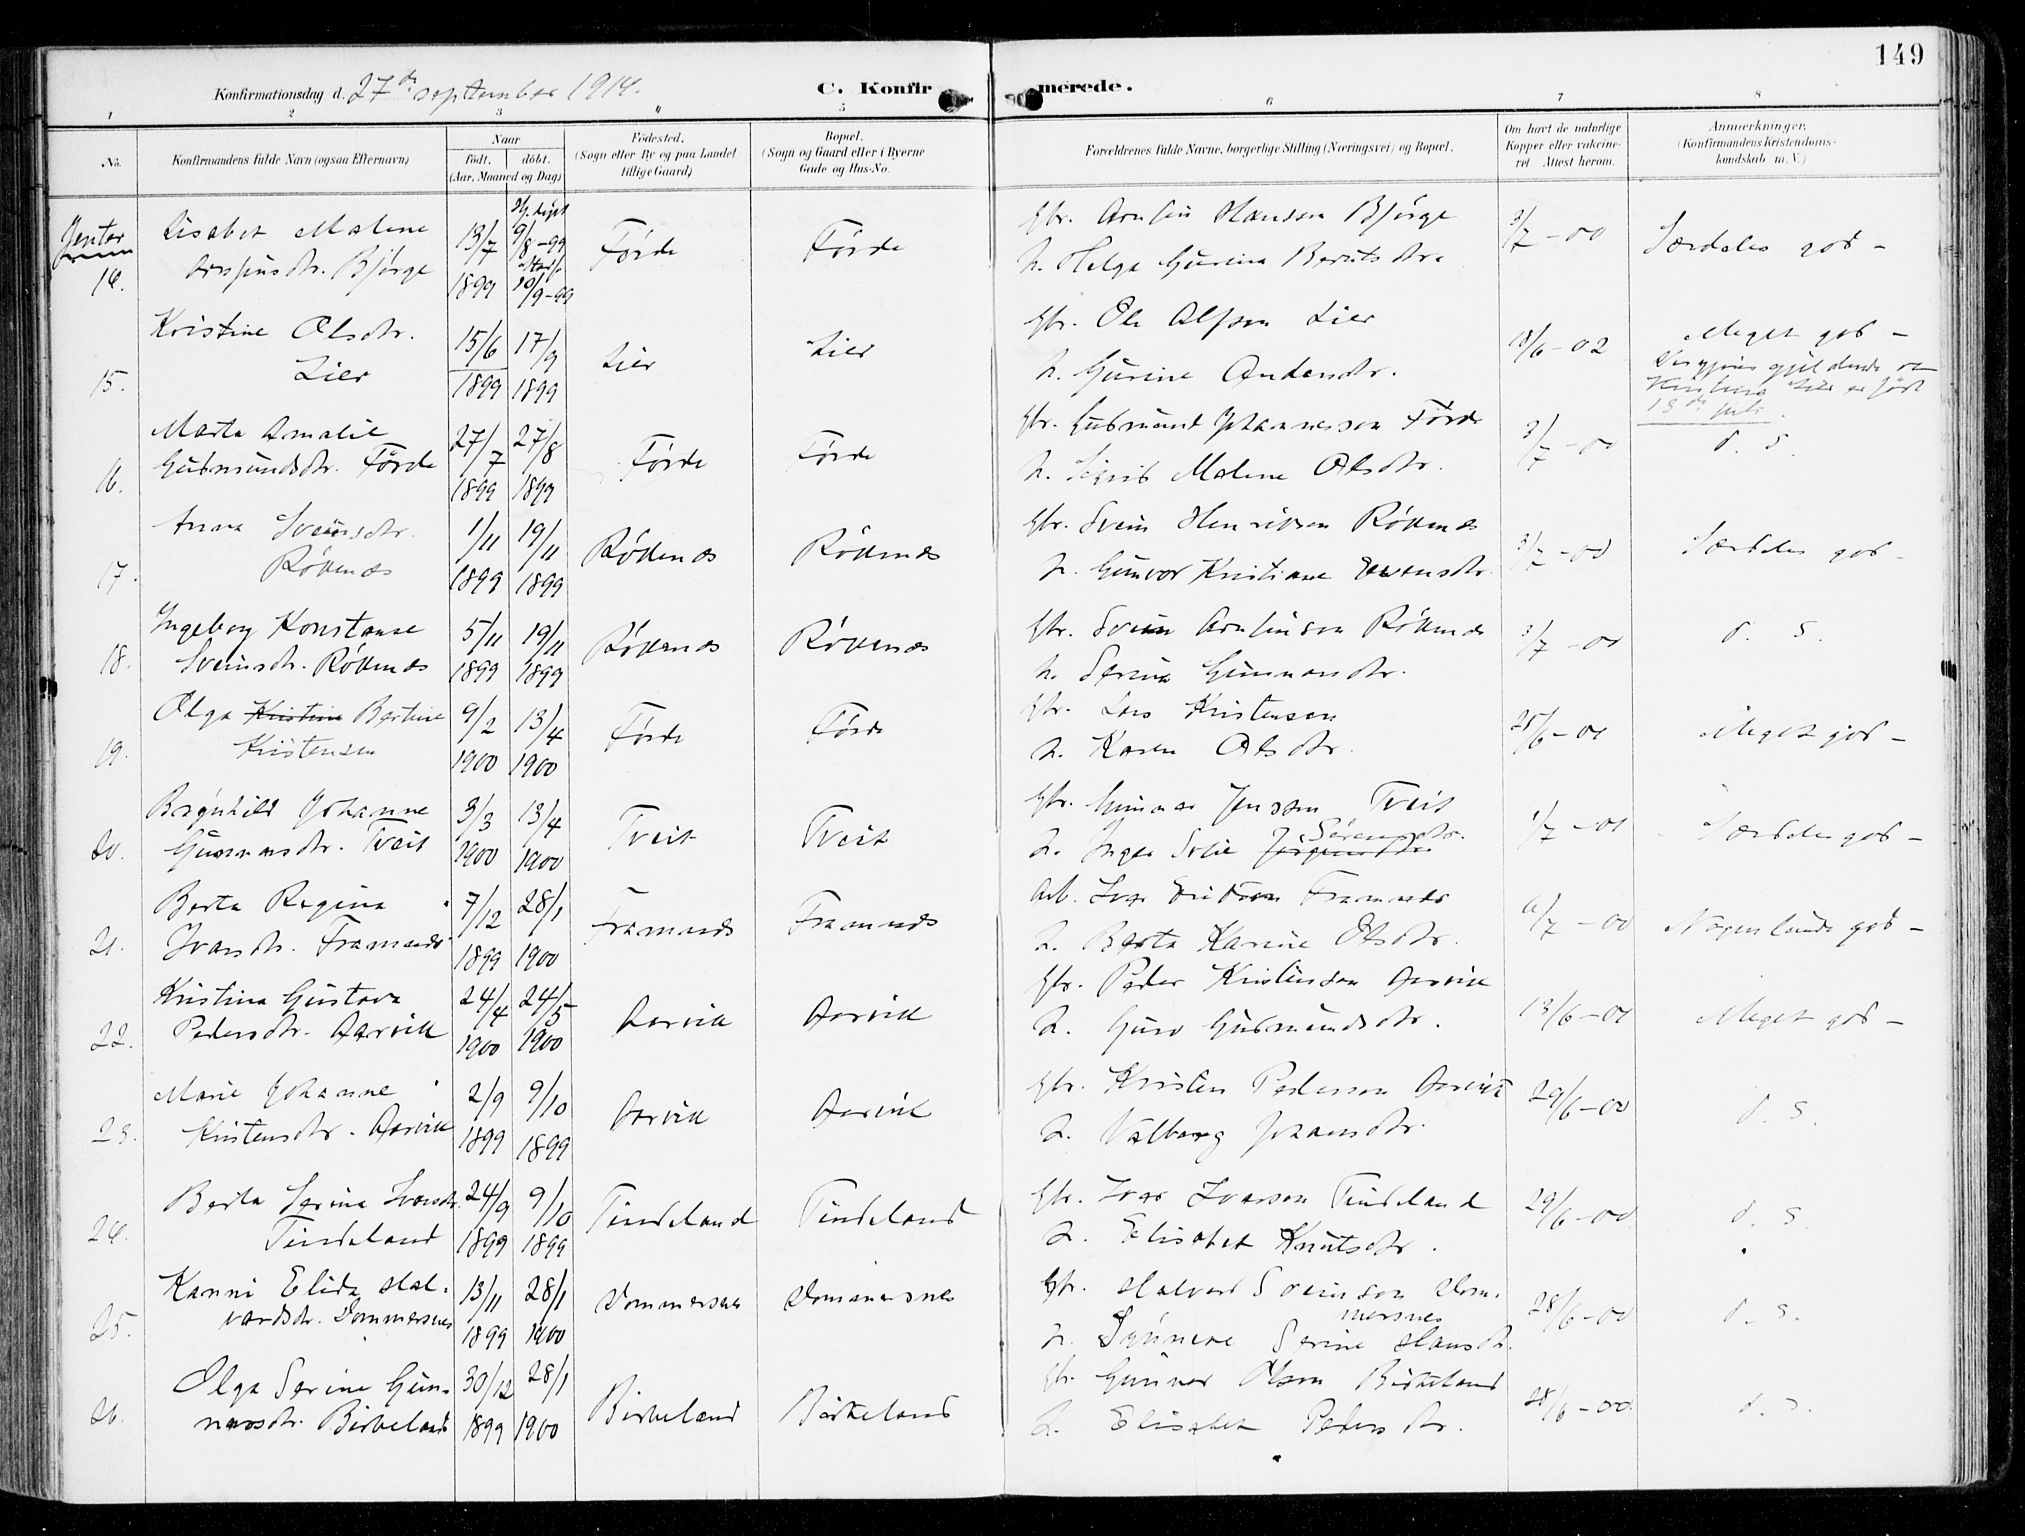 149
Konfirmationsdag d. 27de september 1914.
C. Konfirmerede.
1 2 3 4 5 6 7 8
No.
Konfirmandens fulde Navn (ogsaa Efternavn)
Naar
født. døbt.
(Aar, Maaned og Dag)
Fødested.
(Sogn eller By og paa Landet
tillige Gaard)
Bopæl.
(Sogn og Gaard eller i Byerne
Gade og Hus-No.
Forældrenes fulde Navne, borgerlige Stilling (Næringsvei) og Bopæl.
Om havt de naturlige
Kopper eller vakcine-
ret Attest herom.
Anmærkninger.
(Konfirmandens Kristendoms-
kundskab m.V.)
Jenter
14.
Lisabet Malene
Bjørge
13/7 1899
9/8-99
10/9-99
Førde
Førde
Gbr. Arnfin Hansen Bjørge
h. Helga Gurina Berntsdtr.
3/7-00
Særdeles god -
15.
Kristine Olsdtr.
Lier
15/6 1899
17/9 1899
Lier
Lier
Gbr. Ole Alfson Lier
h. Gurine Andersdtr.
18/6-02
Meget god -
16.
Marta Amalie
Gudmundsdtr. Førde
27/7 1899
27/8 1899
Førde
Førde
Gbr. Gudmund Johannesson Førde
h. Sigrid Malene Olsdtr.
3/7-00
d. s.
17.
Anna Sveinsdtr.
Røkenæs
1/11 1899
19/11 1899
Røkenæs
Røkenæs
Gbr. Svein Henrikson Røkenæs
h. Gunvor Kristiane
3/7-00
Særdeles god -
18.
Ingeborg Konstanse
Sveinsdtr. Røkenæs
5/11 1899
19/11 1899
Røkenæs
Røkenæs
Gbr. Svein Arnfinson Røkenæs
h. Serina Gunnarsdtr.
3/7-00
d. s.
19.
Olga Kristine Bertine
Kristensen
9/2 1900
13/4 1900
Førde
Førde
Gbr. Lars Kristensen
h. Karen Olsdtr.
25/6-01
Meget god -
20.
Brynhild Johanne
Gunnarsdtr. Tveit
3/3 1900
13/4 1900
Tveit
Tveit
Gbr. Gunnar Jensson Tveit
Sørensdtr.
h. Inger Sofie
1/7-01
Særdeles god -
21.
Berta Regina
Ivarsdtr. Framnæs
7/12 1899
28/1 1900
Framnæs
Framnæs
Arb. Ivar Framnæs
h. Berta Karine Olsdtr.
6/7-00
Nogenlunde god -
22.
Kristina Gustava
Pedersdtr. Aarvik
24/4 1900
24/5 1900
Aarvik
Aarvik
Gbr. Peder Kristenson Aarvik
h. Guro Gudmundsdtr.
13/6-01
Meget god -
23.
Marie Johanne
Kristensdtr. Aarvik
2/9 1899
9/10 1899
Aarvik
Aarvik
Gbr. Kristen Pederson Aarvik
h. Valborg Johansdtr.
29/6-00
d. s.
24.
Berta Serina Ivarsdtr.
Tindeland
24/9 1899
9/10 1899
Tindeland
Tindeland
Gbr. Ivar Ivarson Tindeland
h. Elisabet Knutsdtr.
29/6-00
d. s.
25.
Kanni Elida Hal-
vardsdtr. Dommersnes
13/11 1899
28/1 1900
Dommersnes
Dommersnes
Gbr. Halvard Sveinson Dom-
mersnes
h. Synneve Serine Hansdtr.
28/6-00
d. s.
26.
Olga Serine Gun-
narsdtr. Birkeland
30/12 1899
28/1 1900
Birkeland
Birkeland
Gbr. Gunnar Olson Birkeland
h. Elisabet Pedersdtr.
28/6-00
d. s.